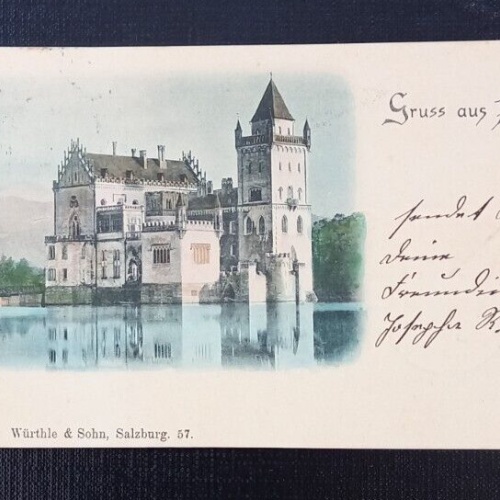 Gruss aus
sendet
Deine
Freundin
Josepha R.
Würthle & Sohn, Salzburg. 57.